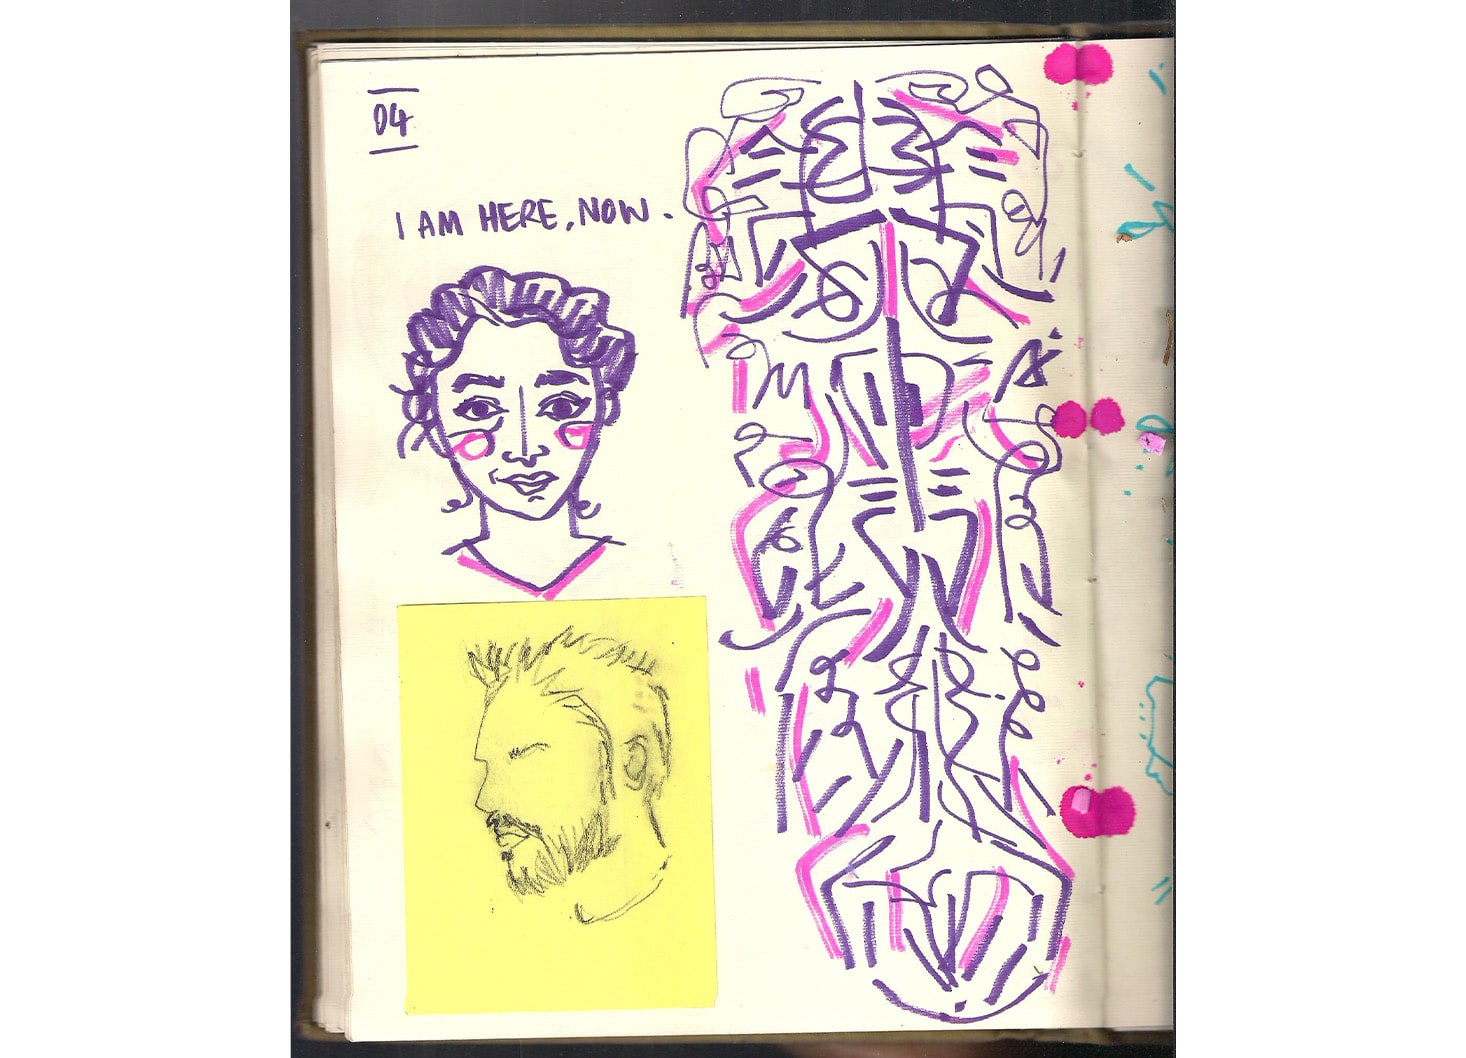 04
I AM HERE, NOW.